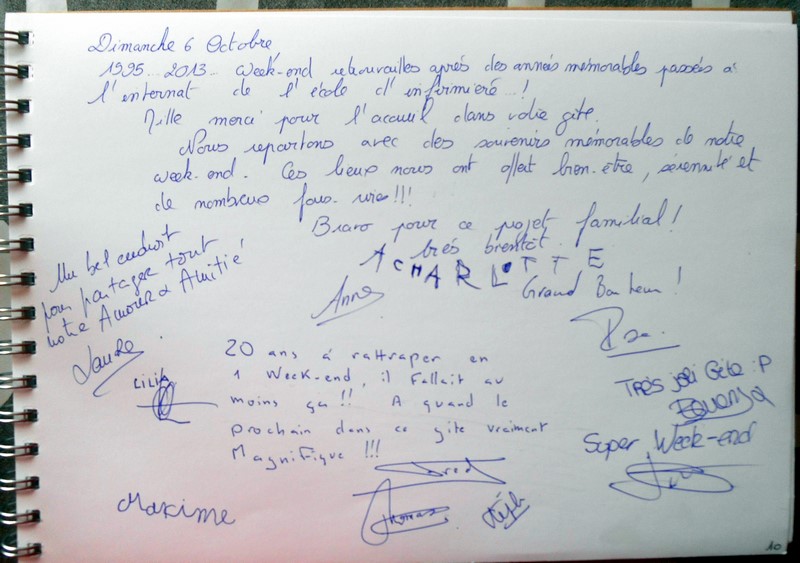 Dimanche 6 Octobre
1995... 2013... Week-end retrouvailles après des années mémorables passés à
l'internat de l'école d'infirmière...!
Mille merci pour l'accueil dans votre gîte.
Nous repartons avec des souvenirs mémorables de notre
week-end. Ces lieux nous ont offert bien-être, sérennité et
de nombreux fous-rires!!!
Bravo pour ce projet familial!
A très bientôt.
CHARLOTTE
Anne
Grand Bonheur!
Un bel endroit
pour partager tout
notre Amour & Amitié
Laure
LILIA
20 ans à rattraper en
1 Week-end, il fallait au
moins ça!! A quand le
prochain dans ce gîte vraiment
Magnifique !!!
Fred
Très joli Gîte :P
Super Week-end
Maxime
Thomas
Steph
10